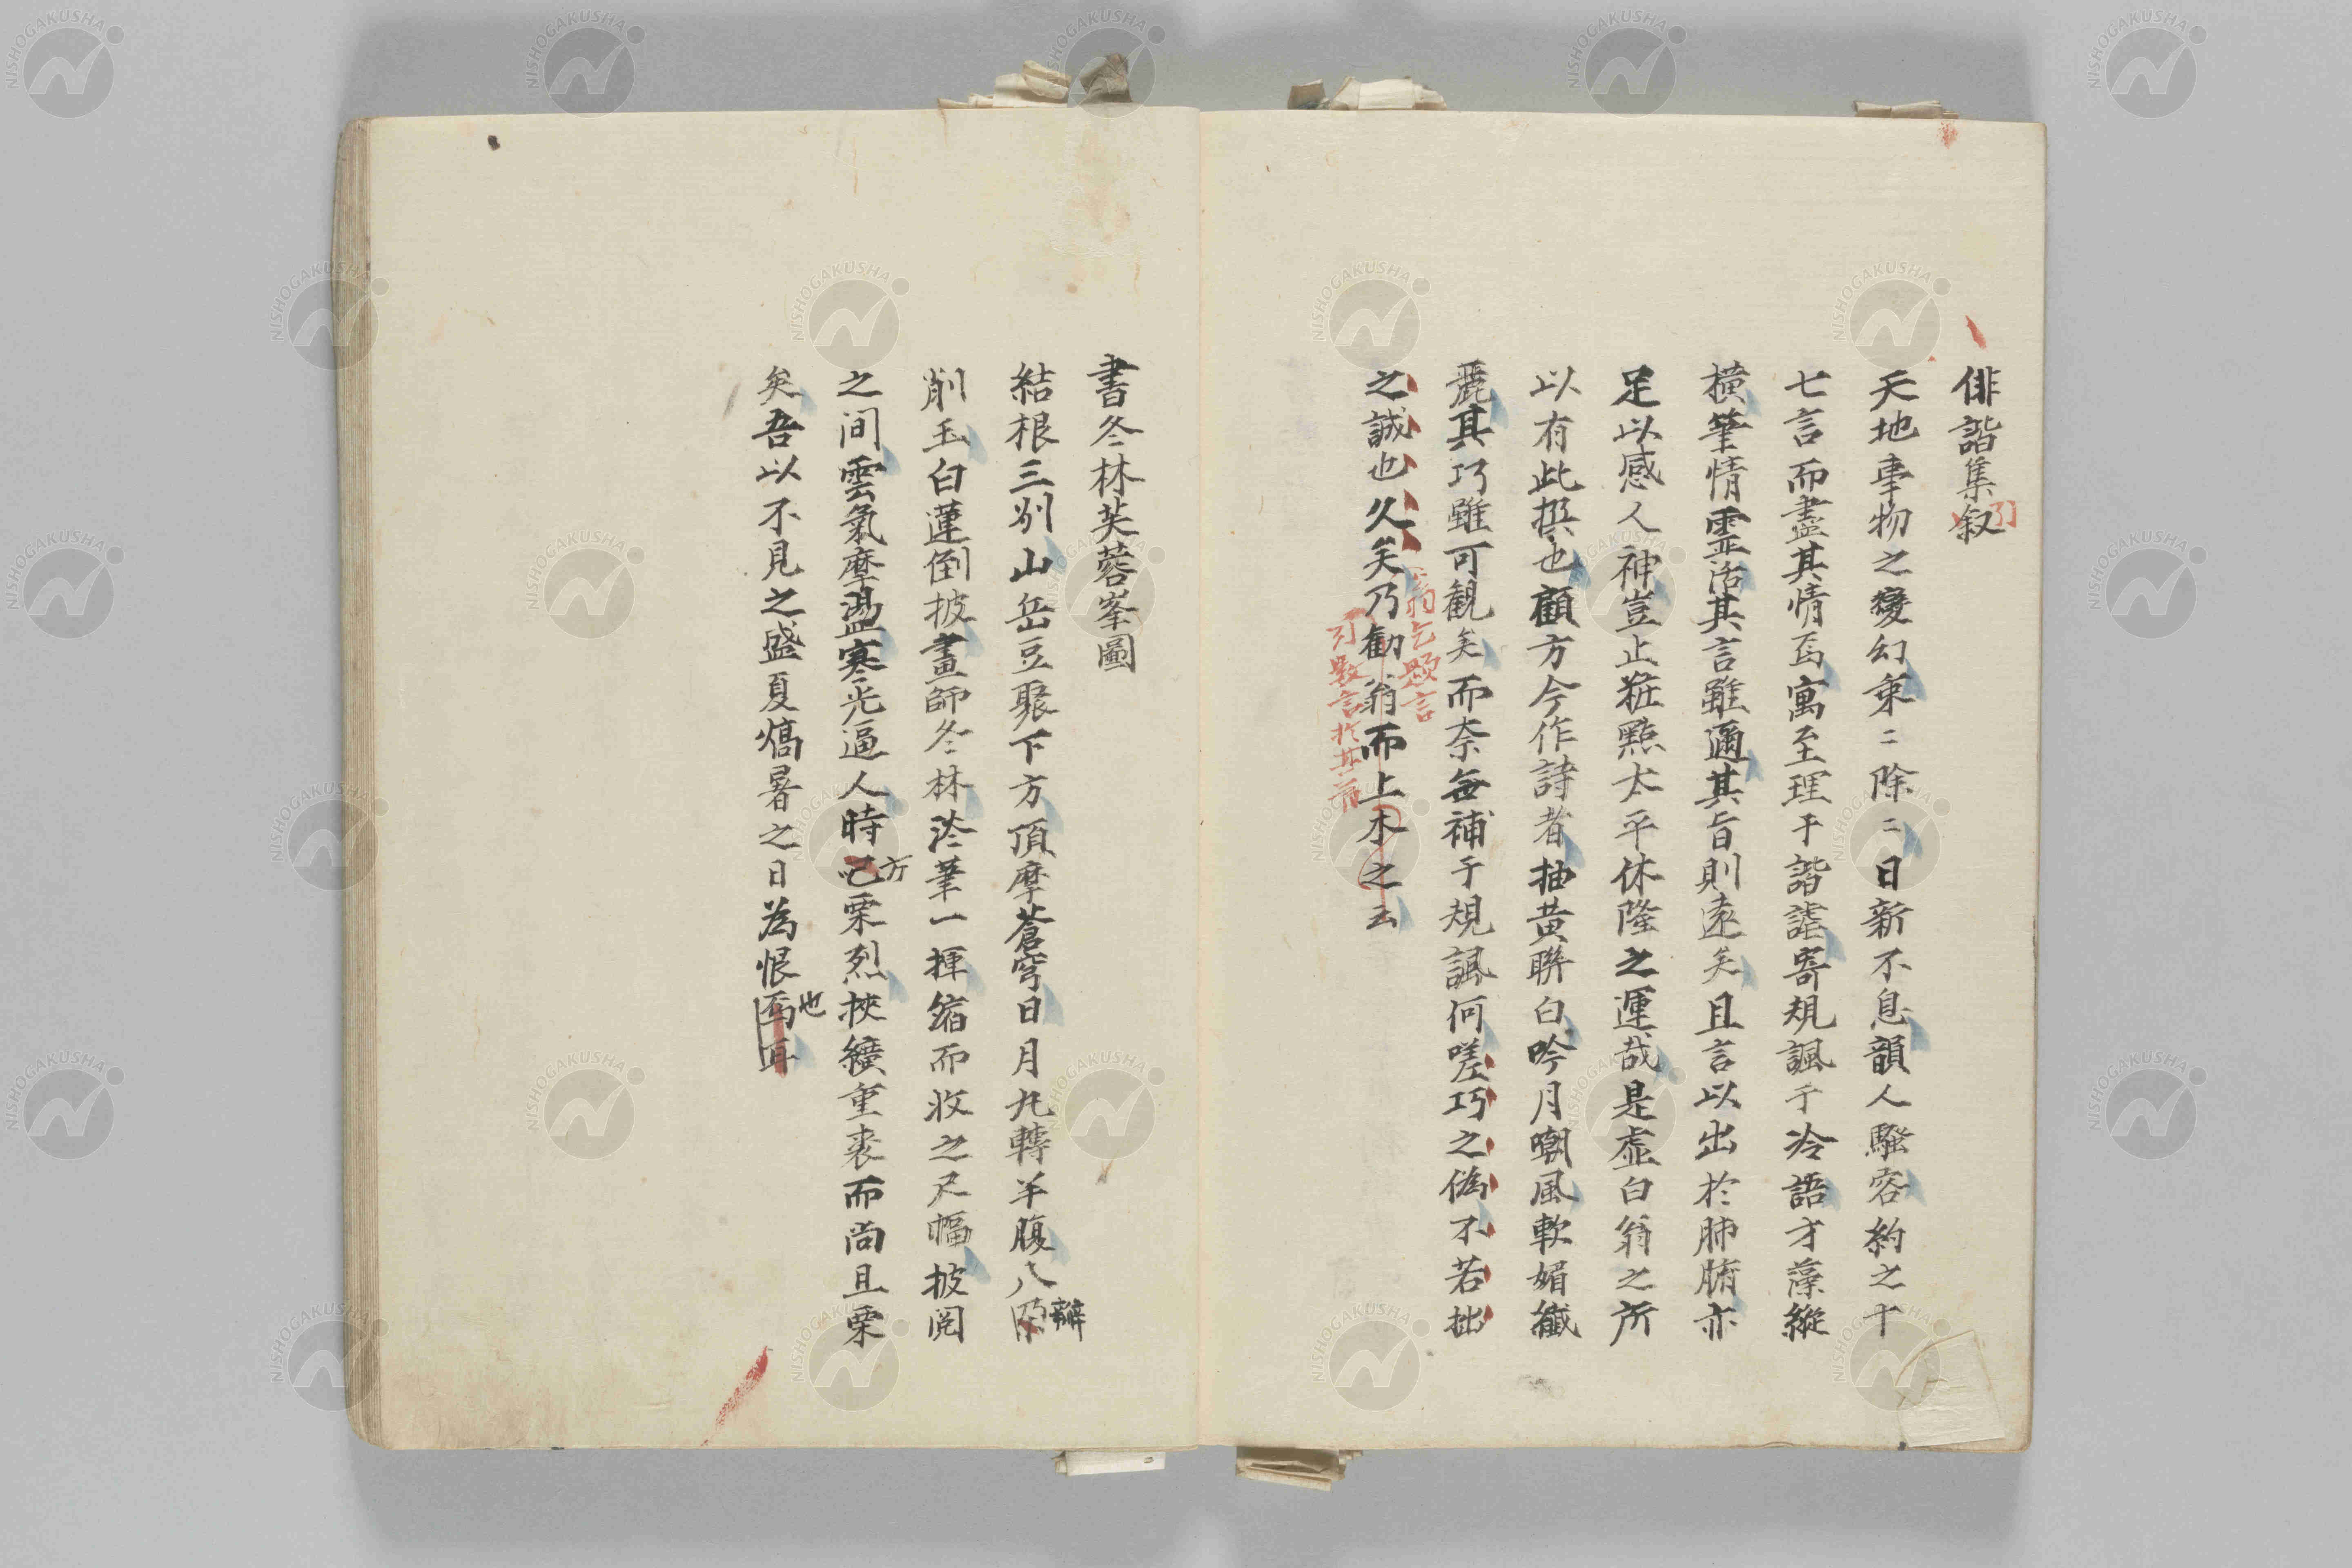 俳諧集叙
引
天地事物之變幻乘二除二日新不息韻人騷客約之十
七言而盡其情焉寓至理于諧謔寄規諷于冷語才藻縱
橫筆情霊活其言雖邇其旨則遠矣且言以出於肺腑亦
足以感人神豈止粧點太平休隆之運哉是虛白翁之所
以有此撰也顧方今作詩者抽黄聯白吟月嘲風軟媚纎
麗其巧雖可観矣而奈無補于規諷何嗟巧之偽不若拙
之誠也久矣乃勸翁而上木之云
翁乞題言
引數言於其首
書冬林芙蓉峯圖
結根三列山岳豆聚下方頂摩蒼穹日月九轉羊腹八
辦
削玉白蓮倒披畫師冬林泠筆一揮縮而收之尺幅披閲
之间雲氣摩盪寒光逼人時已栗烈挾纊重裘而尚且栗
方
矣吾以不見之盛夏熇暑之日為恨焉耳
也
NISHOGAKUSHA